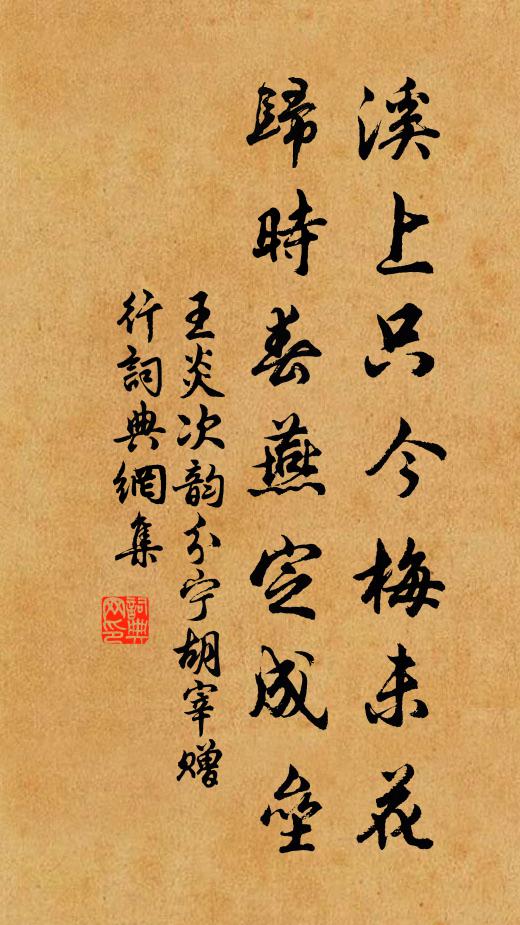 溪上只今梅未花
歸時春燕定成壘
王炎次韵分宁胡宰赠
行詞典網集
詞典网印